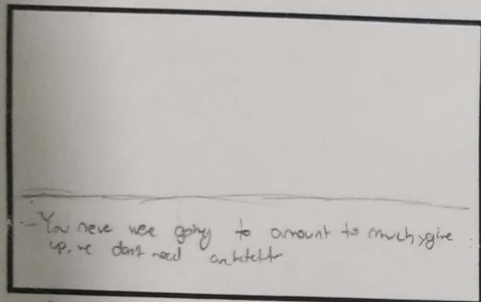 - You never were going to amount to much, give
up. we don't need architects